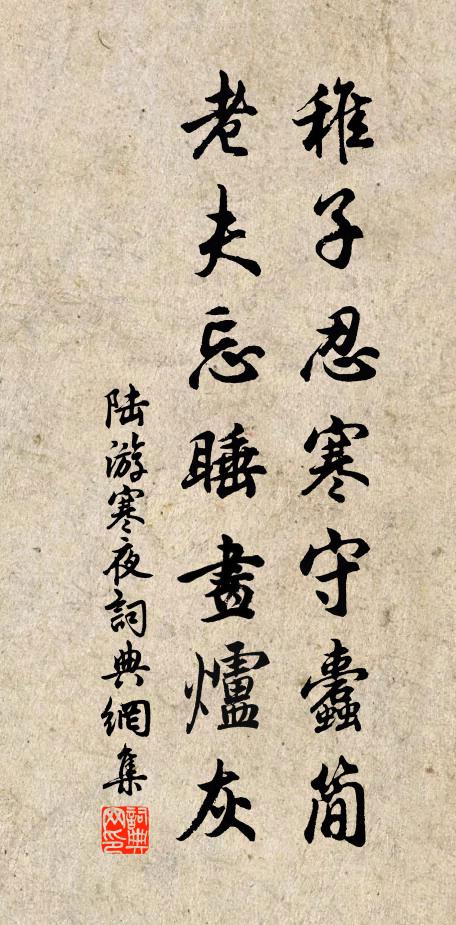 稚子忍寒守蠹簡
老夫忘睡畫爐灰
陸游寒夜詞典網集
詞典網印